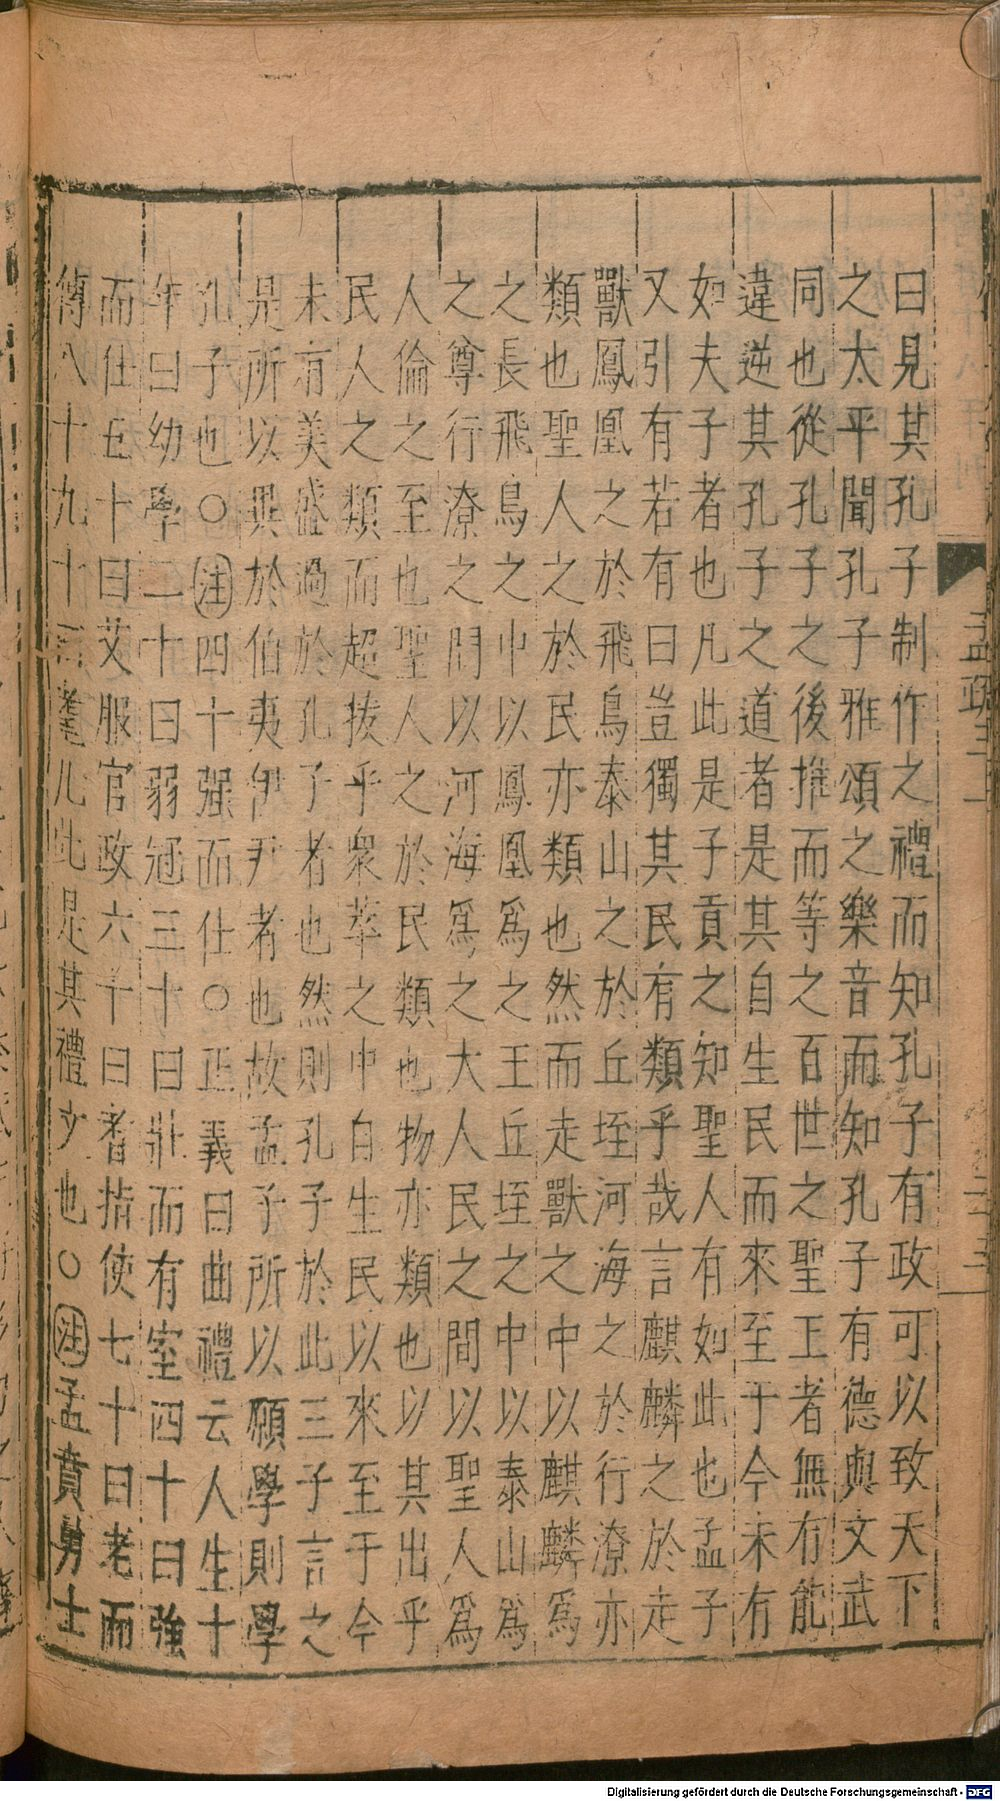 曰見其孔子制作之禮而知孔子有政可以致天下
之太平聞孔子雅頌之樂音而知孔子有德與文武
同也從孔子之後推而等之百世之聖王者無有能
違逆其孔子之道者是其自生民而來至于今未有
如夫子者也凡此是子貢之知聖人有如此也孟子
又引有若有曰豈獨其民有類乎哉言麒麟之於走
獸鳳凰之於飛鳥泰山之於丘垤河海之於行潦亦
類也聖人之於民亦類也然而走獸之中以麒麟爲
之長飛鳥之中以鳳凰爲之王丘垤之中以泰山爲
之尊行潦之間以河海爲之大人民之間以聖人爲
人倫之至也聖人之於民類也物亦類也以其出乎
民人之類而超拔乎衆萃之中自生民以來至于今
未有美盛過於孔子者也然則孔子於此三子言之
是所以異於伯夷伊尹者也故孟子所以願學則學
孔子也○注四十强而仕○正義曰曲禮云人生十
年曰幼學二十曰弱冠三十曰壯而有室四十曰強
而仕五十曰艾服官政六十曰耆指使七十曰老而
傳八十九十曰耄凡此是其禮文也○注孟賁勇士
孟疏三上
三
Digitalisierung gefördert durch die Deutsche Forschungsgemeinschaft - DFG